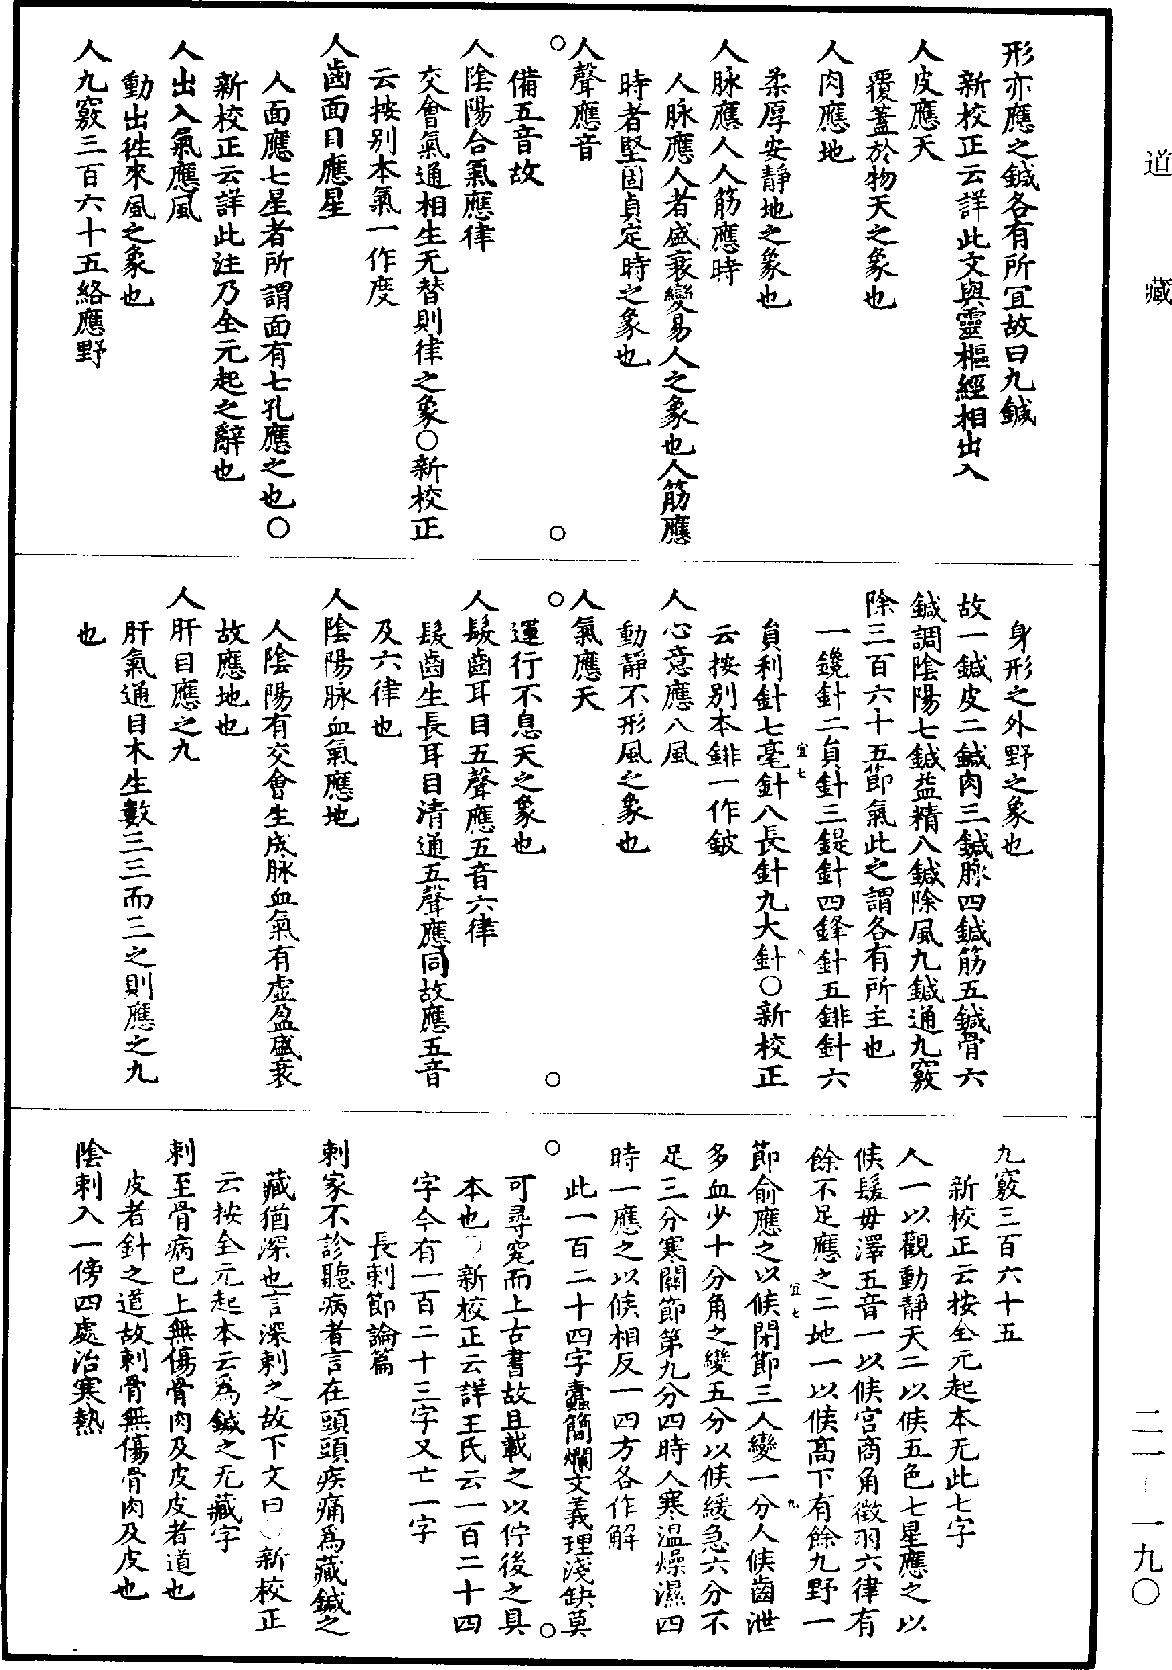 道藏
形亦應之鍼各有所宜故曰九鍼
新校正云詳此文與靈樞經相出入
人皮應天
覆蓋於物天之象也
人肉應地
柔厚安靜地之象也
人脉應人人筋應時
人脉應人者盛衰變易人之象也人筋應
時者堅固貞定時之象也
人聲應音
備五音故
人陰陽合氣應律
交會氣通相生无替則律之象○新校正
云按别本氣一作度
人齒面目應星
人面應七星者所謂面有七孔應之也○
新校正云詳此注乃全元起之辭也
人出入氣應風
動出徃來風之象也
人九竅三百六十五絡應野
身形之外野之象也
故一鍼皮二鍼肉三鍼脉四鍼筋五鍼骨六
鍼調陰陽七鍼益精八鍼除風九鍼通九竅
除三百六十五節氣此之謂各有所主也
一鑱針二員針三鍉針四鋒針五鈹針六
員利針七毫針八長針九大針○新校正
云按别本鈹一作鈹
人心意應八風
動靜不形風之象也
人氣應天
運行不息天之象也
人髮齒耳目五聲應五音六律
髮齒生長耳目清通五聲應同故應五音
及六律也
人陰陽脉血氣應地
人陰陽有交會生成脉血氣有虛盈盛衰
故應地也
人肝目應之九
肝氣通目木生數三三而三之則應之九
也
九竅三百六十五
新校正云按全元起本无此七字
人一以觀動靜天二以候五色七星應之以
候髮毋澤五音一以候宮商角徵羽六律有
餘不足應之二地一以候高下有餘九野一
節俞應之以候閉節三人變一分人候齒泄
多血少十分角之變五分以候緩急六分不
足三分寒關節第九分四時人寒温燥濕四
時一應之以候相反一四方各作解
此一百二十四字蠹簡爛文義理淺缺莫
可尋究而上古書故且載之以佇後之具
本也○新校正云詳王氏云一百二十四
字今有一百二十三字又亡一字
長刺節論篇
刺家不診聽病者言在頭頭疾痛爲藏鍼之
藏猶深也言深刺之故下文曰○新校正
云按全元起本云爲鍼之无藏字
刺至骨病已上無傷骨肉及皮皮者道也
皮者針之道故刺骨無傷骨肉及皮也
陰刺入一傍四處治寒熱
二一—一九〇